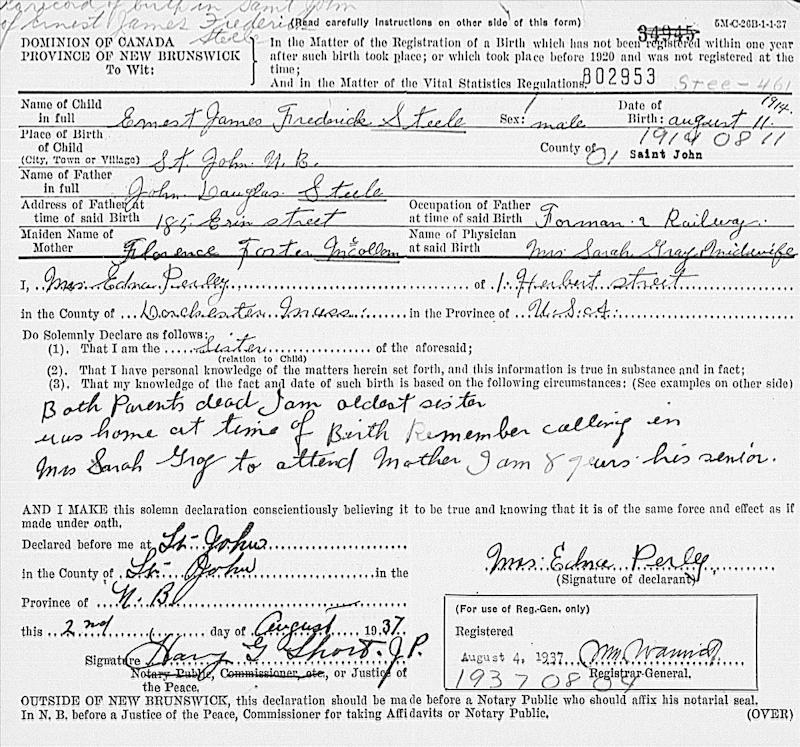 record of birth in Saint John
of Ernest James Frederick
Steele
(Read carefully instructions on other side of this form)
34945
5M-C-26B-1-1-37
DOMINION OF CANADA
PROVINCE OF NEW BRUNSWICK
To Wit:
In the Matter of the Registration of a Birth which has not been registered within one year
after such birth took place; or which took place before 1920 and was not registered at the
time;
And in the Matter of the Vital Statistics Regulations.
802953
Stee-461
Name of Child
in full Ernest James Fredrick Steele Sex: male Date of Birth: august 11 1914.
1914 08 11
Place of Birth
of Child
(City, Town or Village) St. John N.B. County of 01 Saint John
Name of Father
in full John Douglas Steele
Address of Father at
time of said Birth 185 Erin street
Occupation of Father
at time of said Birth Forman Railway.
Maiden Name of
Mother Florence Foster McCollom
Name of Physician
at said Birth Mrs Sarah Gray Midwife
I, Mrs. Edna Perley of 1. Herbert street
in the County of Dorchester Mass in the Province of U.S.A.
Do Solemnly Declare as follows:
(1). That I am the Sister of the aforesaid;
(relation to Child)
(2). That I have personal knowledge of the matters herein set forth, and this information is true in substance and in fact;
(3). That my knowledge of the fact and date of such birth is based on the following circumstances: (See examples on other side)
Both Parents dead I am oldest sister
was home at time of Birth Remember calling in
Mrs Sarah Gray to attend Mother I am 8 years his senior.
AND I MAKE this solemn declaration conscientiously believing it to be true and knowing that it is of the same force and effect as if
made under oath.
Declared before me at St. John
in the County of St. John in the
Province of N.B.
this 2nd day of August 1937.
Signature Harry G Short. J.P.
Notary Public, Commissioner, etc., or Justice of
the Peace.
Mrs. Edna Perley.
(Signature of declarant)
(For use of Reg-Gen. only)
Registered
August 4, 1937 Wm Warwick
Registrar-General.
1937 08 04
OUTSIDE OF NEW BRUNSWICK, this declaration should be made before a Notary Public who should affix his notarial seal.
In N. B. before a Justice of the Peace, Commissioner for taking Affidavits or Notary Public.
(OVER)